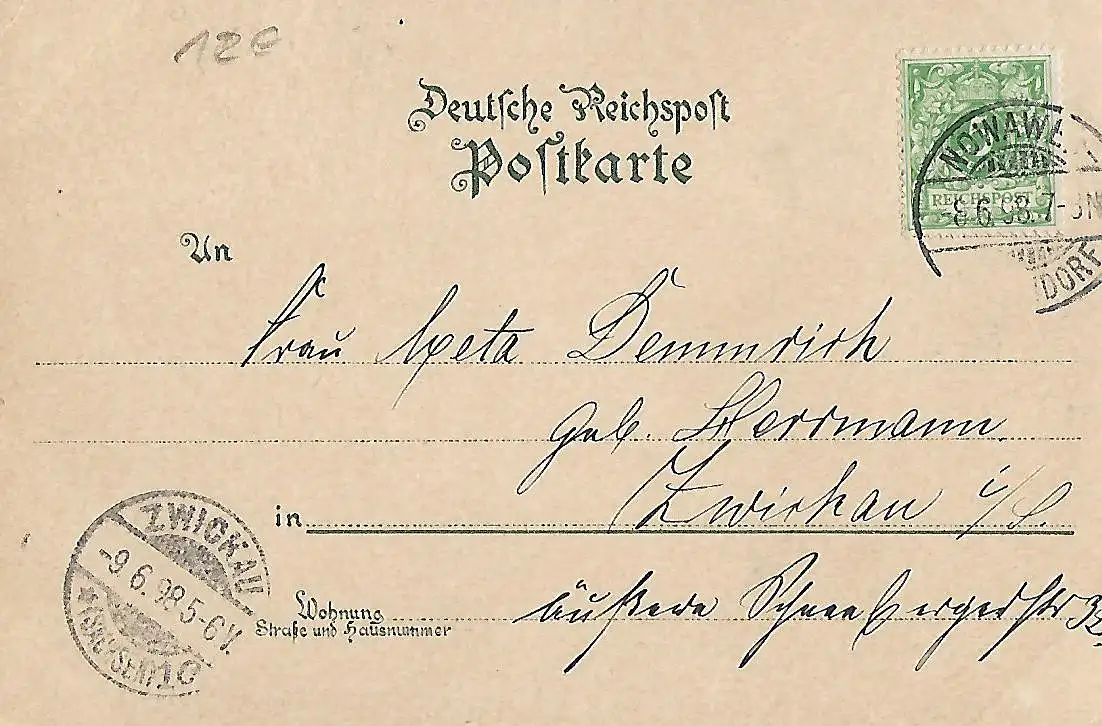 12€
Deutsche Reichspost
Postkarte
REICHSPOST
NOWAWE
-8.6.98.7-8N
DORF
An
Frau Meta Demmrich
geb. Herrmann
in Zwickau i/S.
Wohnung äußere Schneebergerstr
Straße und Hausnummer
ZWICKAU
-9.6.98.5-6V.
*(SACHSEN)1c